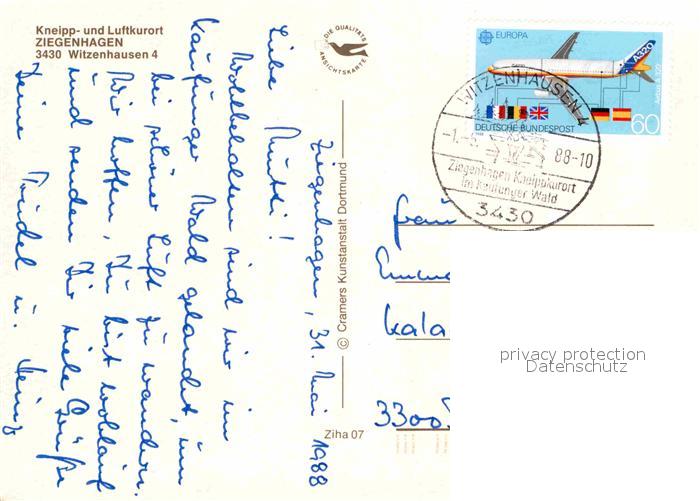 Kneipp- und Luftkurort
ZIEGENHAGEN
3430 Witzenhausen 4
DIE QUALITÄTS
ANSICHTSKARTE
Ziegenhagen, 31. Mai 1988
Liebe Mutti!
Wohlbehalten sind wir im
Kaufunger Wald gelandet, um
bei schöner Luft zu wandern.
Wir hoffen, Du bist wohlauf
und senden Dir viele Grüße
Deine u. Heinz
© Cramers Kunstanstalt Dortmund
Ziha 07
EUROPA
A320
Airbus A 320
DEUTSCHE BUNDESPOST
60
WITZENHAUSEN 4
88-10
Ziegenhagen Kneippkurort
im Kaufunger Wald
3430
Frau
Kala
3300
privacy protection
Datenschutz